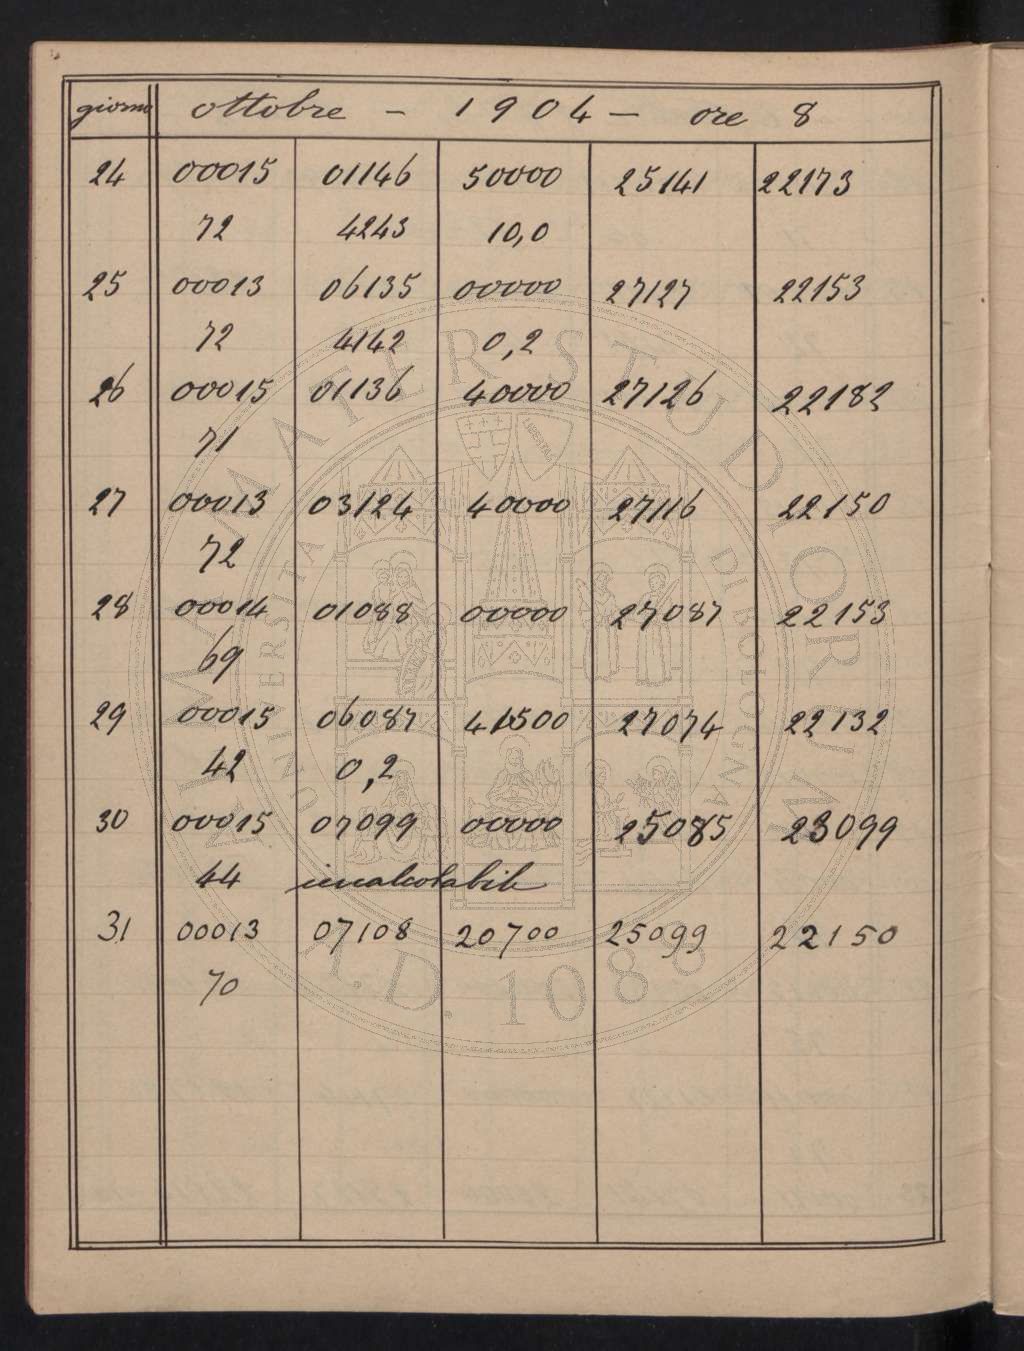 giorno ottobre - 1904 - ore 8
24 00015 01146 50000 25141 22173
72 4243 10,0
25 00013 06135 00000 27127 22153
72 4142 0,2
26 00015 01136 40000 27126 22182
71
27 00013 03124 40000 27116 22150
72
28 00014 01088 00000 27087 22153
69
29 00015 06087 41500 27074 22132
42 0,2
30 00015 07099 00000 25085 23099
44 incalcolabile
31 00013 07108 20700 25099 22150
70
ALMA MATER STUDIORUM
UNIVERSITÀ DI BOLOGNA
LIBERTAS
A.D. 1088